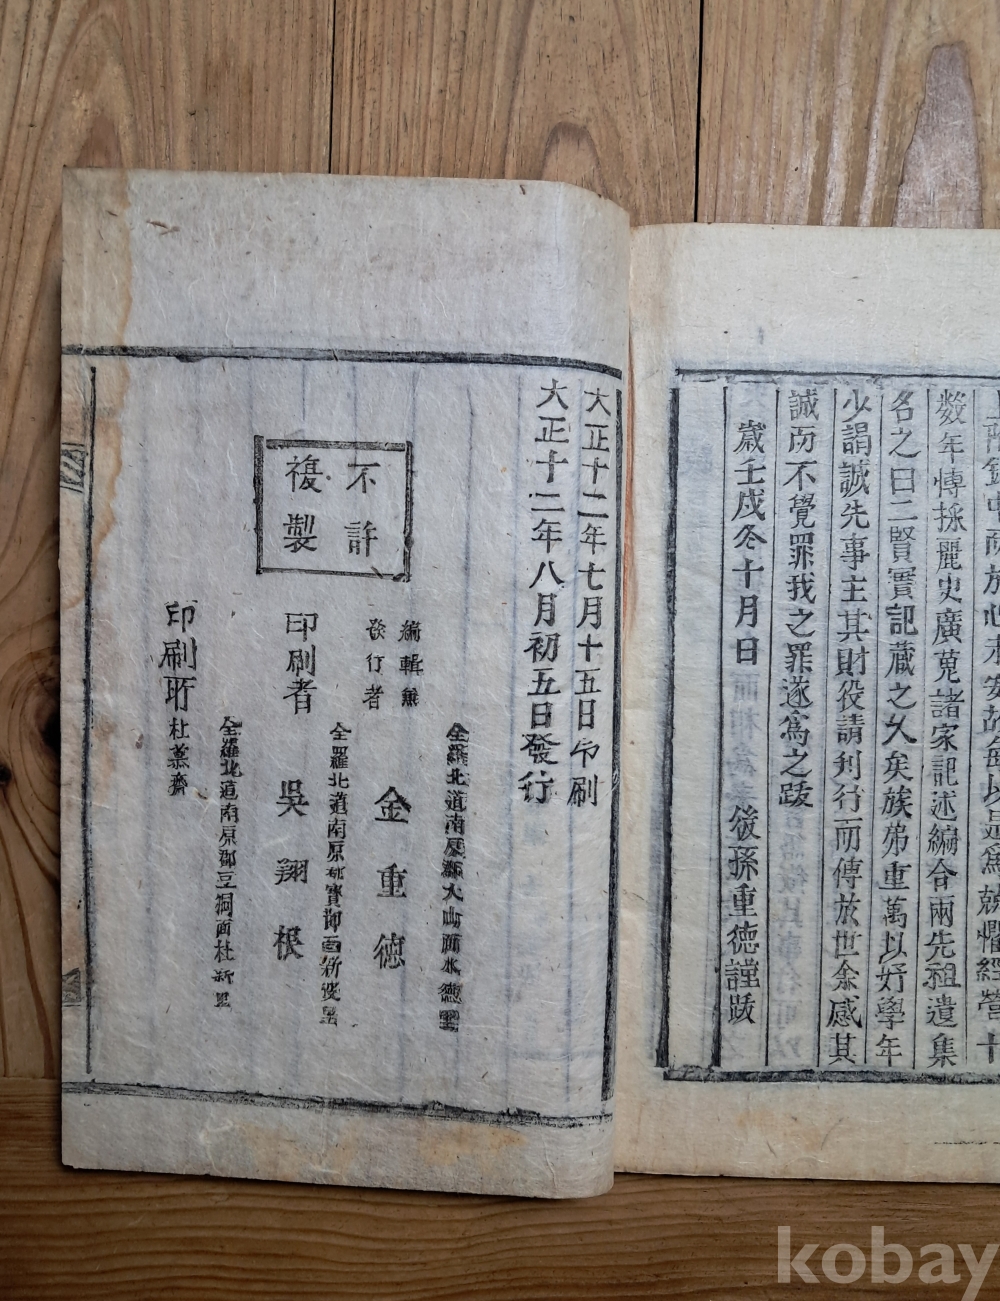 數年慱採麗史廣蒐諸家記述編合兩先祖遺集
名之曰二賢實記藏之久矣族弟重萬以好學年
少謂誠先事主其財役請刋行而傳於世余感其
誠而不覺罪我之罪遂爲之跋
歲壬戌冬十月日
後孫重德謹跋
大正十二年七月十五日印刷
大正十二年八月初五日發行
不許
複製
全羅北道南原郡大山面水德里
編輯兼
發行者
金重德
全羅北道南原郡寶

印刷者
吳翔根
全羅北道南原郡豆洞面杜新里
印刷所
杜慕齋
kobay